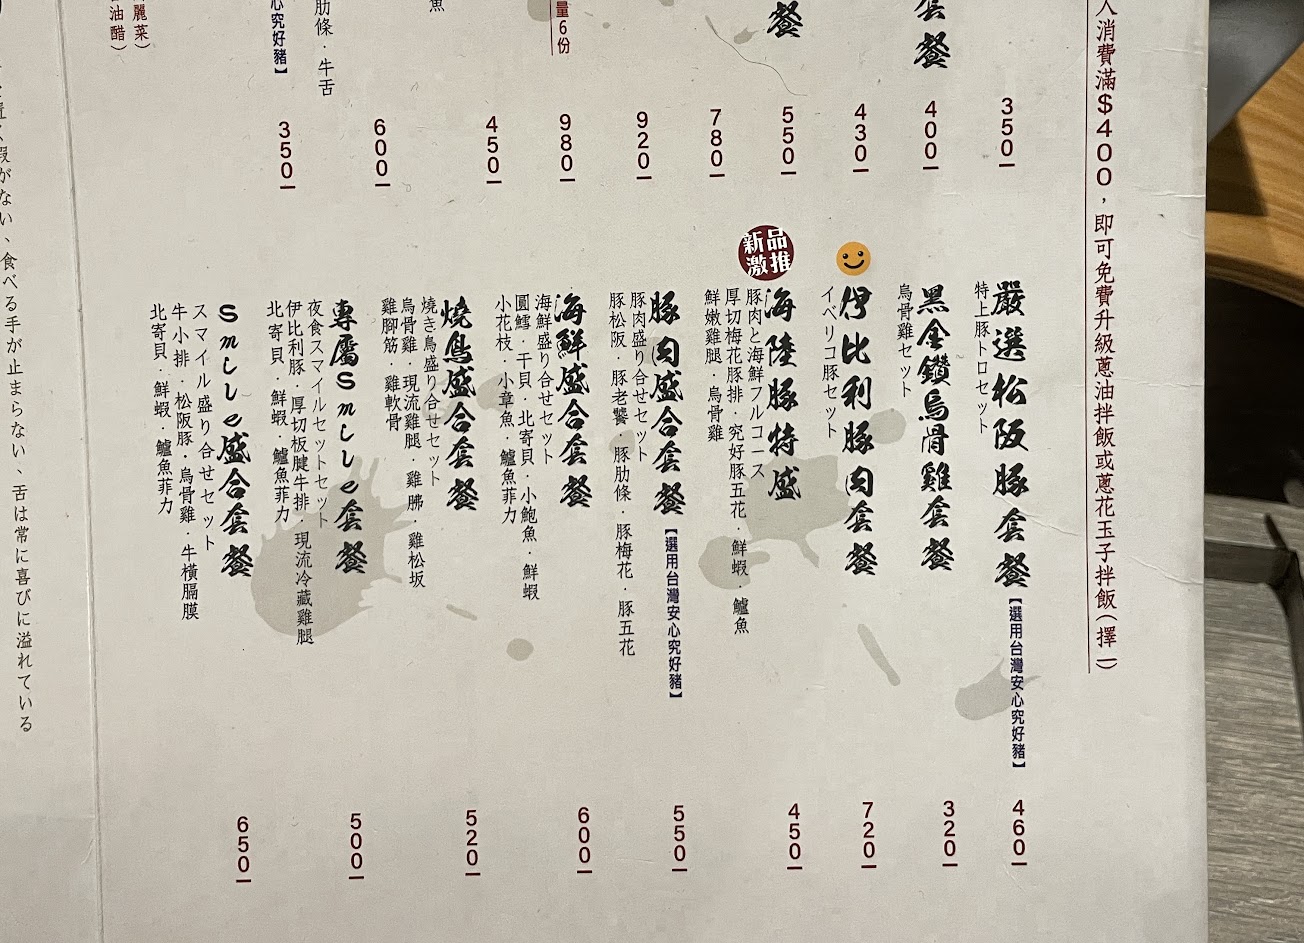 人消費滿$400，即可免費升級蔥油拌飯或蔥花玉子拌飯(擇一)
350
套餐
400
430
餐
550
780
920
量6份
980
450
魚
600
肋條．牛舌
心究好豬】
350
麗菜）
油醋）
嚴選松阪豚套餐【選用台灣安心究好豬】
特上豚トロセット
460
黑金鑽烏骨雞套餐
烏骨雞セット
320
伊比利豚肉套餐
イベリコ豚セット
720
新品
激推
海陸豚特盛
豚肉と海鮮フルコース
厚切梅花豚排．究好豚五花．鮮蝦．鱸魚
鮮嫩雞腿．烏骨雞
450
豚肉盛合套餐【選用台灣安心究好豬】
豚肉盛り合せセット
豚松阪．豚老饕．豚肋條．豚梅花．豚五花
550
海鮮盛合套餐
海鮮盛り合せセット
圓鱈．干貝．北寄貝．小鮑魚．鮮蝦
小花枝．小章魚．鱸魚菲力
600
燒鳥盛合套餐
燒き鳥盛り合せセット
烏骨雞．現流雞腿．雞胇．雞松坂
雞腳筋．雞軟骨
520
專屬Smile套餐
夜食スマイルセットセット
伊比利豚．厚切板腱牛排．現流冷藏雞腿
北寄貝．鮮蝦．鱸魚菲力
500
Smile盛合套餐
スマイル盛り合せセット
牛小排．松阪豚．烏骨雞．牛橫膈膜
北寄貝．鮮蝦．鱸魚菲力
650
暇がない、食べる手が止まらない、舌は常に喜びに溢れている